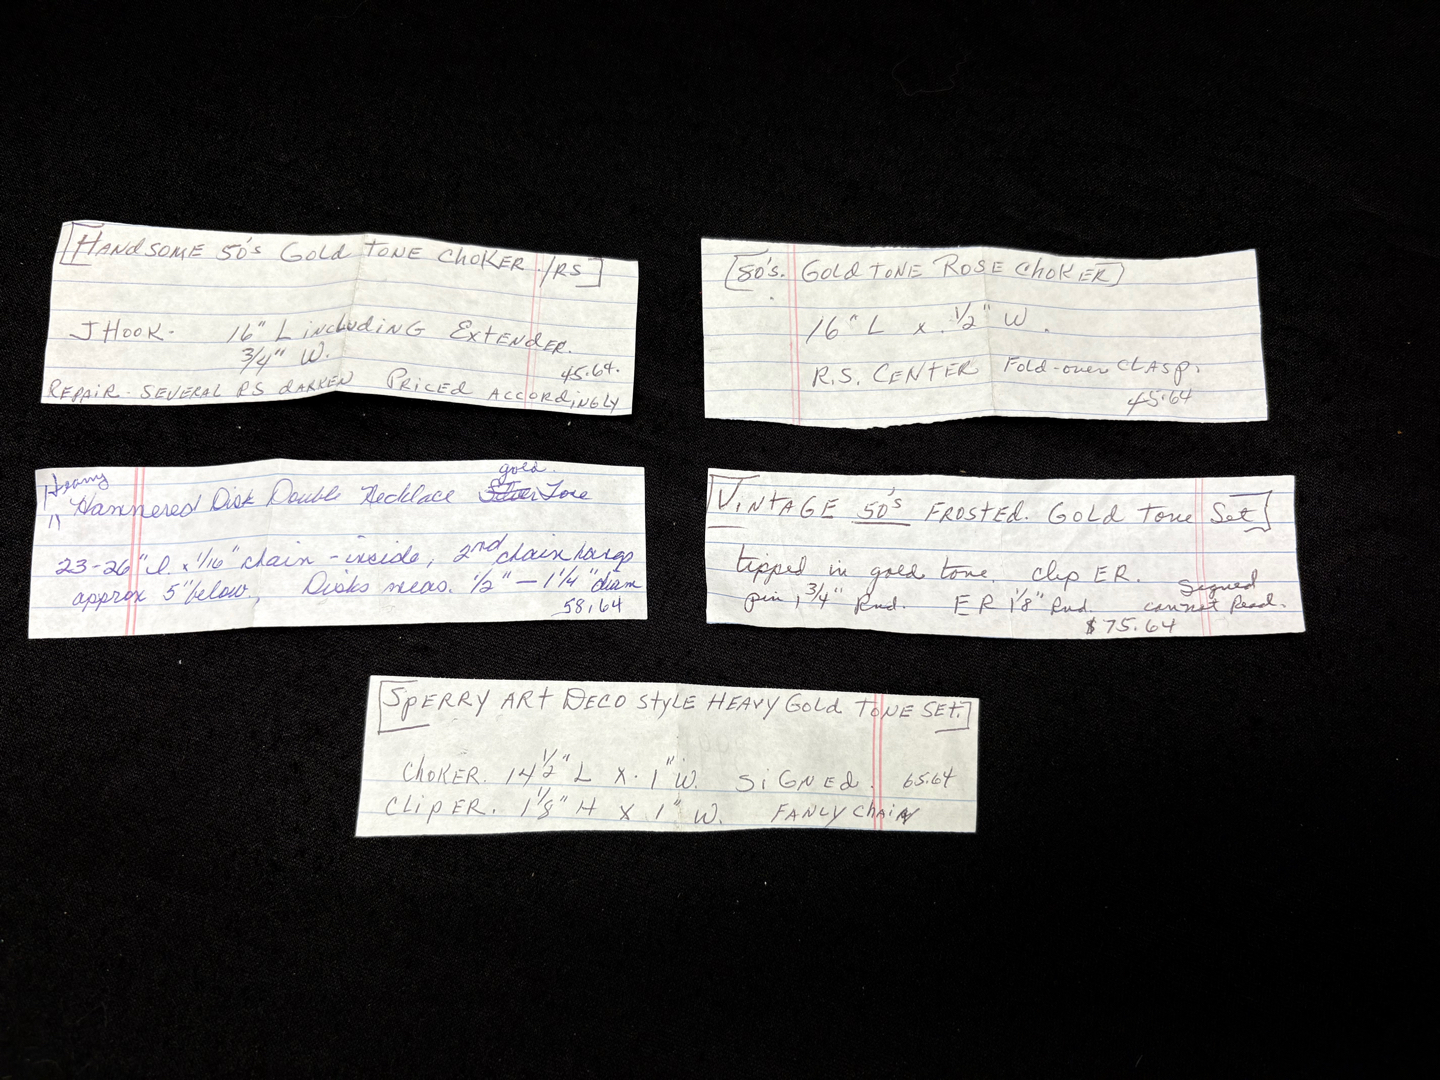 [HANDSOME 50's Gold TONE CHOKER /RS]
J HOOK - 16" L includiNG EXTENDER.
3/4" W.
45.64.
REPAIR - SEVERAL RS dARKEN PRICED ACCORdiNGLY
[80's. GOLd TONE ROSE CHOKER]
16" L x 1/2" W.
R.S. CENTER Fold-over CLASP.
45.64
Heavy gold
" Hammered Disk Double Necklace Silver Tone
23-26" l. x 1/16" chain - inside, 2nd chain hangs
approx 5" below, Disks meas. 1/2" - 1 1/4" diam
58.64
[VINTAGE 50's FROSTEd. GOLd Tone Set]
tipped in gold tone. clip ER.
pin, 3/4" Rnd. E R 1 1/8" Rnd. Signed cannot Read.
$75.64
[SPERRY ARt DECO StyLE HEAVY GOld TONE SEt.]
CHOKER. 14 1/2" L X. 1" W. SiGNEd. 65.64
CLIP ER. 1 1/8" H X 1" W. FANCY ChAiN